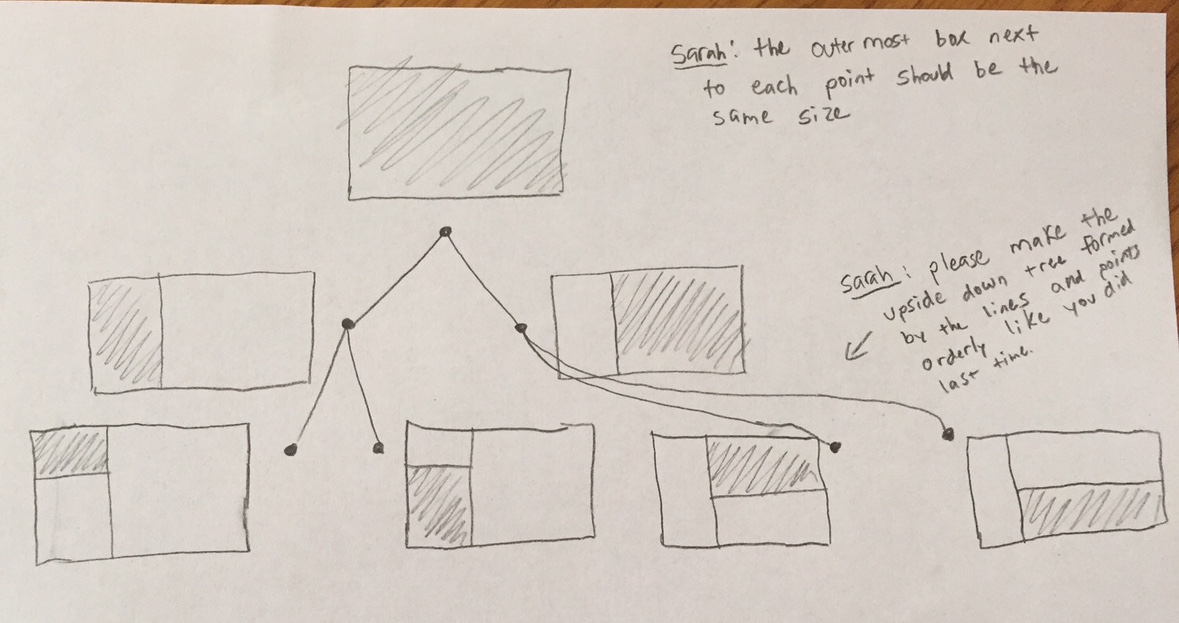 Sarah: the outermost box next
to each point should be the
same size
Sarah: please make the
upside down tree formed
by the lines and points
orderly like you did
last time.